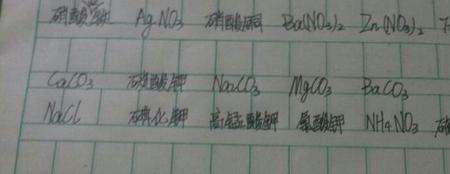 硝酸 AgNO3 硝酸 Ba(NO3)2 Zn(NO3)2
CaCO3 碳酸钾 Na2CO3 MgCO3 BaCO3
NaCl 碘化钾 高锰酸钾 氯酸钾 NH4NO3